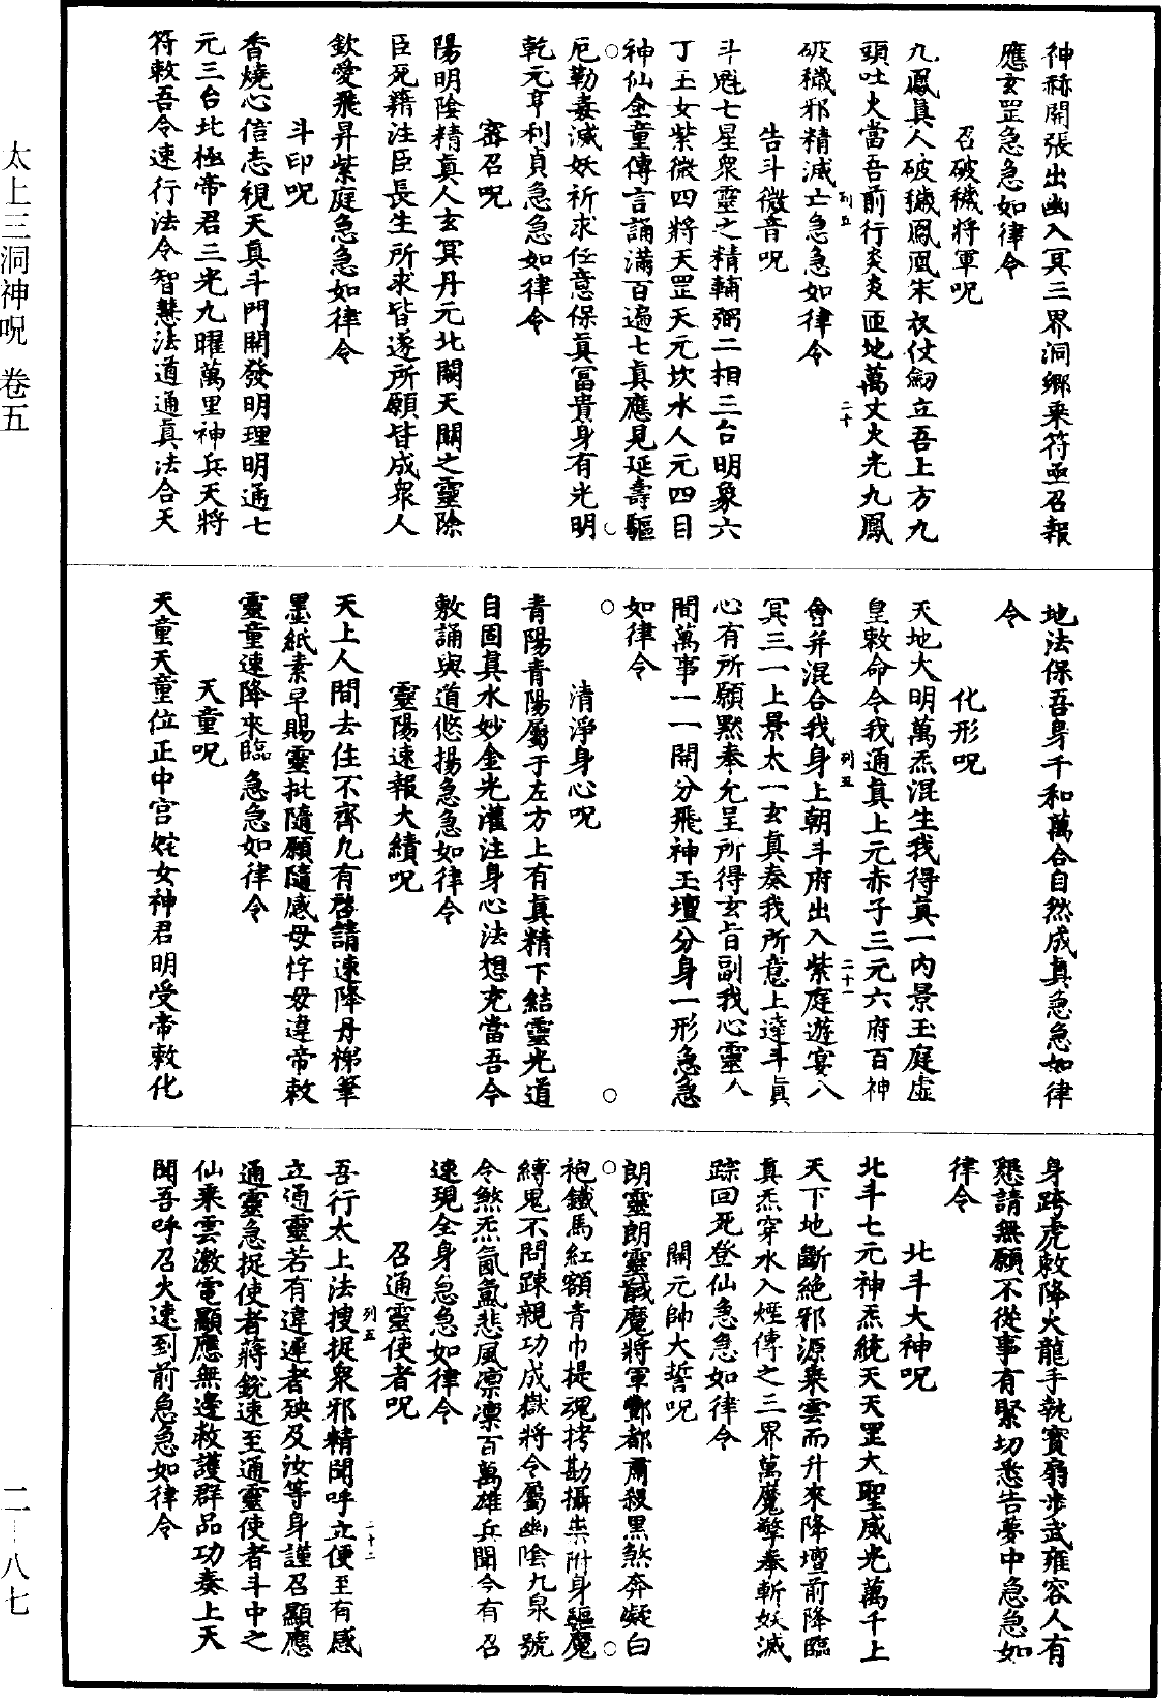 神祕開張出幽入冥三界洞鄉乘符亟召報
應玄罡急急如律令
召破穢將軍呪
九鳳真人破穢鳳凰朱衣仗劒立吾上方九
頭吐火當吾前行炎炎匝地萬丈火光九鳳
列五
二十
破穢邪精滅亡急急如律令
告斗微音呪
斗魁七星衆靈之精輔弼二相三台明象六
丁玉女紫微四將天罡天元坎水人元四目
神仙金童傳言誦滿百遍七真應見延壽驅
厄勒毒滅妖祈求任意保真冨貴身有光明
乾元亨利貞急急如律令
密召呪
陽明陰精真人玄冥丹元北關天關之靈除
臣死籍注臣長生所求皆遂所願皆成衆人
欽愛飛昇紫庭急急如律令
斗印呪
香燒心信志視天真斗門開發明理明通七
元三台北極帝君三光九曜萬里神兵天將
符敕吾令速行法令智慧法道通真法合天
地法保吾身千和萬合自然成真急急如律
令
化形呪
天地大明萬炁混生我得真一內景玉庭虛
皇敕命令我通真上元赤子三元六府百神
列五
二十一
會并混合我身上朝斗府出入紫庭遊宴八
冥三一上景太一玄真奏我所意上達斗真
心有所願黙奉允呈所得玄旨副我心靈人
間萬事一一開分飛神玉壇分身一形急急
如律令
清淨身心呪
青陽青陽屬于左方上有真精下結靈光道
自固真水妙金光灌注身心法想充當吾今
敷誦與道悠揚急急如律令
靈陽速報大績呪
天上人間去住不齊凡有啓請速降丹梯筆
墨紙素早賜靈批隨願隨感毋悖毋違帝敕
靈童速降來臨急急如律令
天童呪
天童天童位正中宮姹女神君明受帝敕化
身跨虎敕降火龍手執寶扇步武雍容人有
懇請無願不從事有緊切悉告夢中急急如
律令
北斗大神呪
北斗七元神炁統天天罡大聖威光萬千上
天下地斷絕邪源乘雲而升來降壇前降臨
真炁穿水入煙傳之三界萬魔擎拳斬妖滅
踪回死登仙急急如律令
關元帥大誓呪
朗靈朗靈馘魔將軍酆都肅殺黑煞奔凝白
袍鐵馬紅額青巾提魂拷勘攝祟附身驅魔
縛鬼不問踈親功成嶽將令屬幽陰九泉號
令煞炁氤氳悲風凛凛百萬雄兵聞今有召
速現全身急急如律令
召通靈使者呪
列五
二十二
吾行太上法搜捉衆邪精聞呼立便至有感
立通靈若有違遲者殃及汝等身謹召顯應
通靈急捉使者蔣銳速至通靈使者斗中之
仙乘雲激電顯應無邊救護群品功奏上天
聞吾呼召火速到前急急如律令
太上三洞神呪 卷五
二—八七